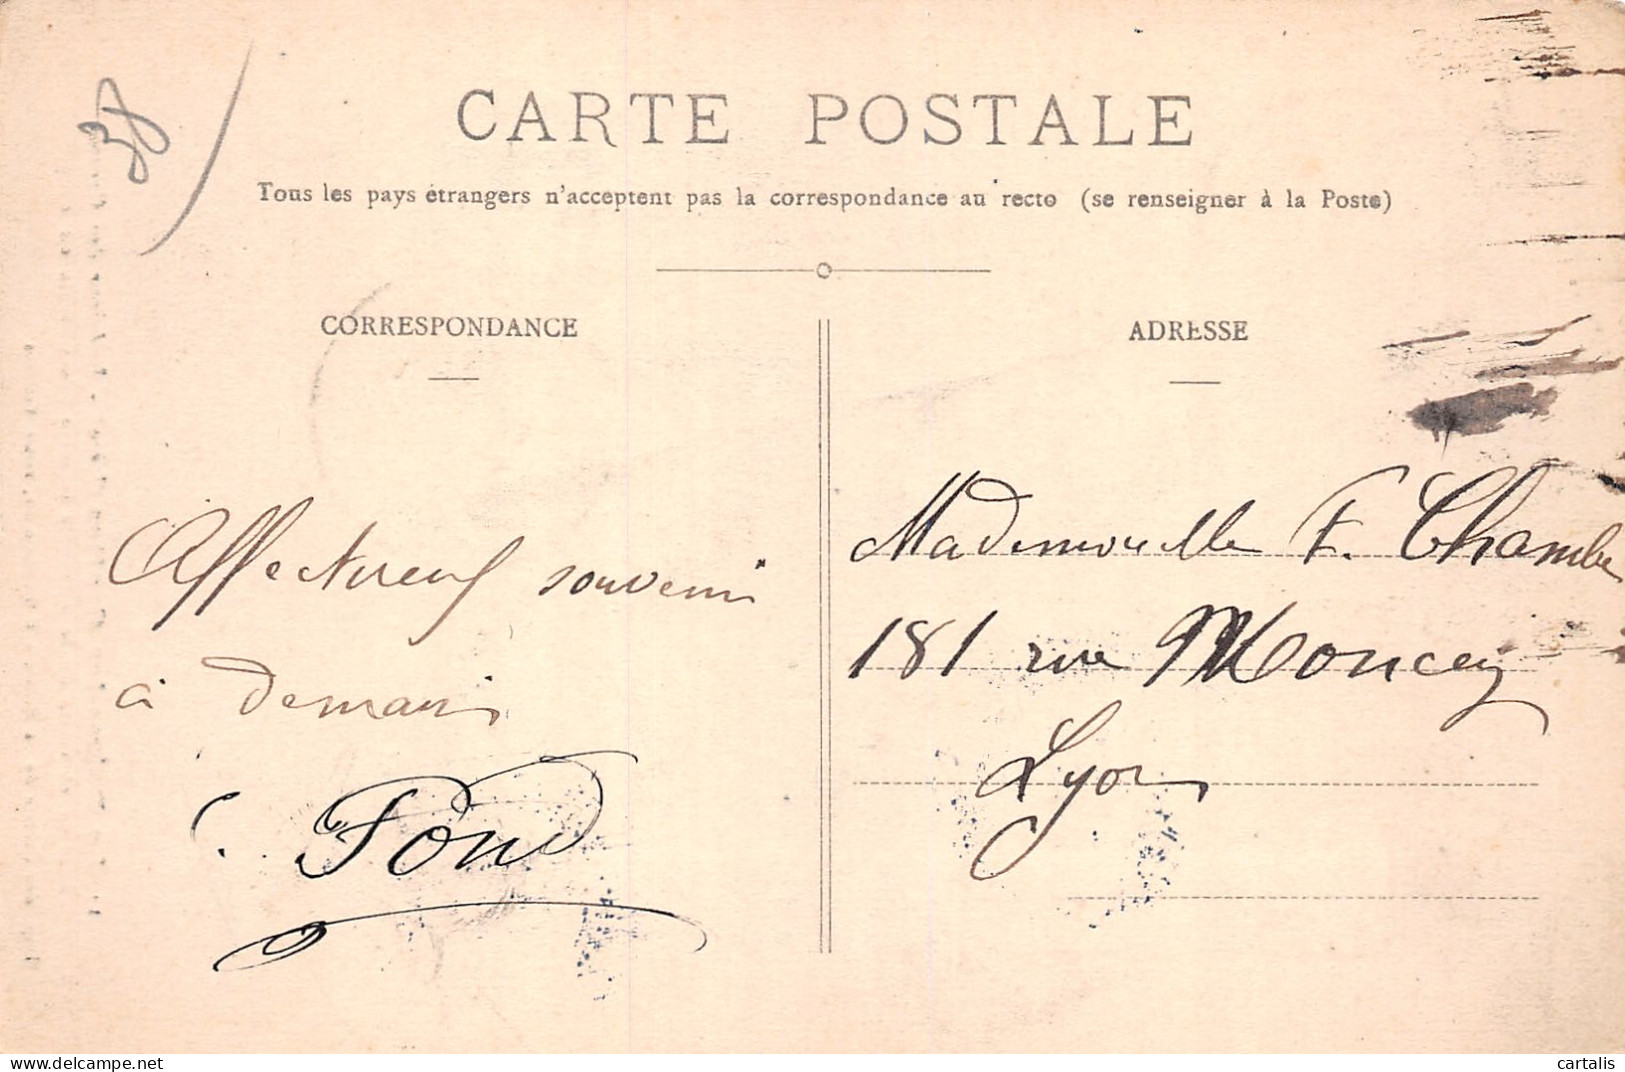 38
CARTE POSTALE
Tous les pays étrangers n'acceptent pas la correspondance au recto (se renseigner à la Poste)
CORRESPONDANCE
ADRESSE
Affectueux souvenir
à demain
Fond
Mademoiselle F. Chambe
181 rue Moncey
Lyon
www.delcampe.net
cartalis